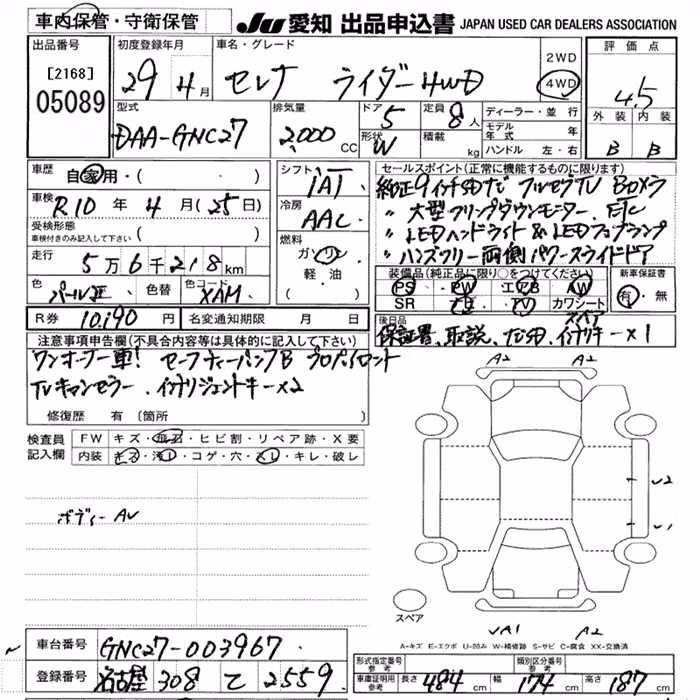 車内保管・守衛保管
JU 愛知 出品申込書 JAPAN USED CAR DEALERS ASSOCIATION
出品番号 初度登録年月 車名・グレード 評価点
[2168] 05089 29年4月 セレナ ライダー4WD 2WD 4WD 4.5
型式 排気量 ドア 5 定員 8人 ディーラー・並行 外装 内装
DAA-GNC27 2,000CC 形状 W 積載 kg モデル年式 年 B B
ハンドル 左・右
車歴 自家用・( ) シフト IAT セールスポイント(正常に機能するものに限ります)
車検 R10年4月(25日) 冷房 AAC 純正9インチSDナビ フルセグTV Bカメラ
受検形態 車検付きのみ記入して下さい ( ) 〃 大型フリップダウンモニター. ETC
燃料 ガソリン 軽・油 〃 LEDヘッドライト & LEDフォグランプ
走行 5万6千218km 〃 ハンズフリー両側パワースライドドア
色 パールⅡ 色替 色コード XAM 装備品(純正品に限り○をつけてください) 新車保証書
PS PW エアB AW 有・無
SR ナビ TV カワシート
R券 10,190円 名変通知期限 月 日 後日品 スペア
保証書、取説、ナビ用、インテリキー×1
注意事項申告欄(不具合内容等は具体的に記入して下さい)
ワンオーナー車! セーフティーパックB プロパイロット
TVキャンセラー、インテリジェントキー×2
修復歴 有 〔箇所
検査員記入欄 FW キズ・飛石・ヒビ割・リペア跡・X要
内装 キズ・汚レ・コゲ・穴・スレ・キレ・破レ
A2 A2
ボディー AU
U2
U1
スペア
UA1 A2
A-キズ E-エクボ U-凹み W-補修跡 S-サビ C-腐食 XX-交換済
車台番号 GNC27-003967
登録番号 名古屋 308 て 2559
形式指定番号 参考 類別区分番号 参考
車庫証明用参考 長さ 484cm 幅 174cm 高さ 187cm